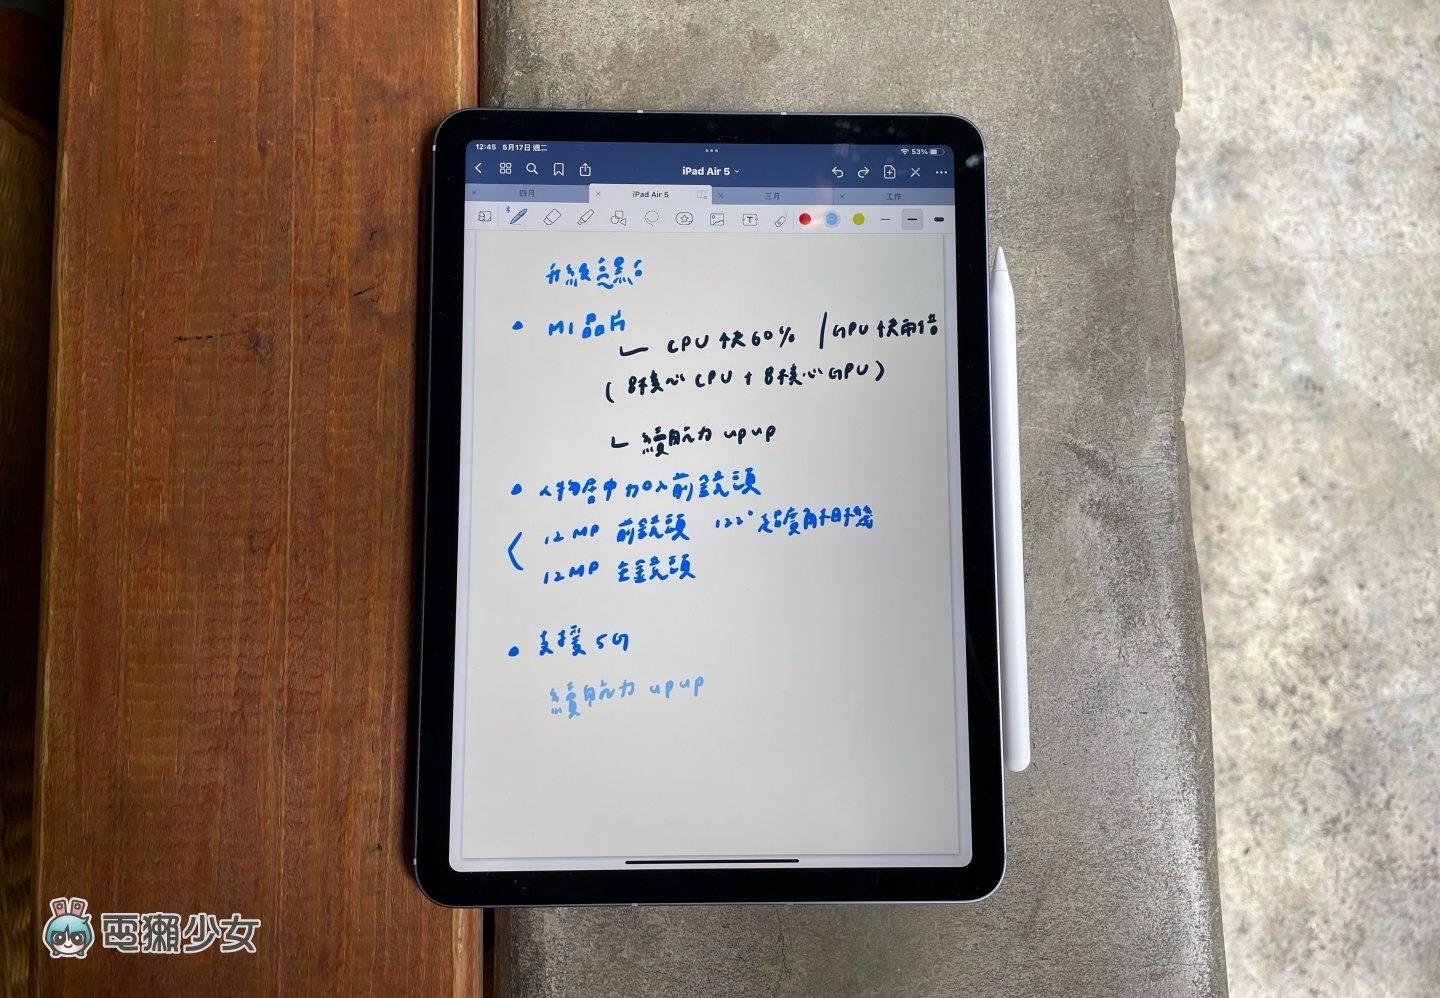 12:45 5月17日 週二
53%
iPad Air 5
四月
iPad Air 5
三月
工作
T
升級亮點
• M1晶片
CPU 快60% / GPU 快兩倍
(8核心 CPU + 8核心 GPU)
續航力 up up
• 人物居中加入前鏡頭
12 MP 前鏡頭 122° 超廣角相機
12MP 主鏡頭
• 支援 5G
續航力 up up
電獺少女